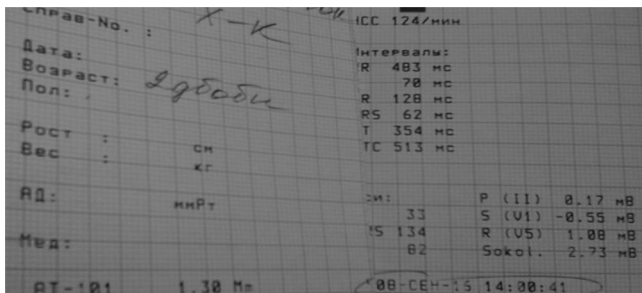 Справ-No. : X-K
Дата:
Возраст:
Пол:
Рост : см
Вес : кг
АД: ммРт
Мед:
АТ-101 1.30 Мm
ЧСС 124/мин
Интервалы:
RR 483 мс
70 мс
R 128 мс
RS 62 мс
T 354 мс
TC 513 мс
си:
33
RS 134
82
P (II) 0.17 мВ
S (V1) -0.55 мВ
R (V5) 1.08 мВ
Sokol. 2.73 мВ
08-СЕН-15 14:00:41